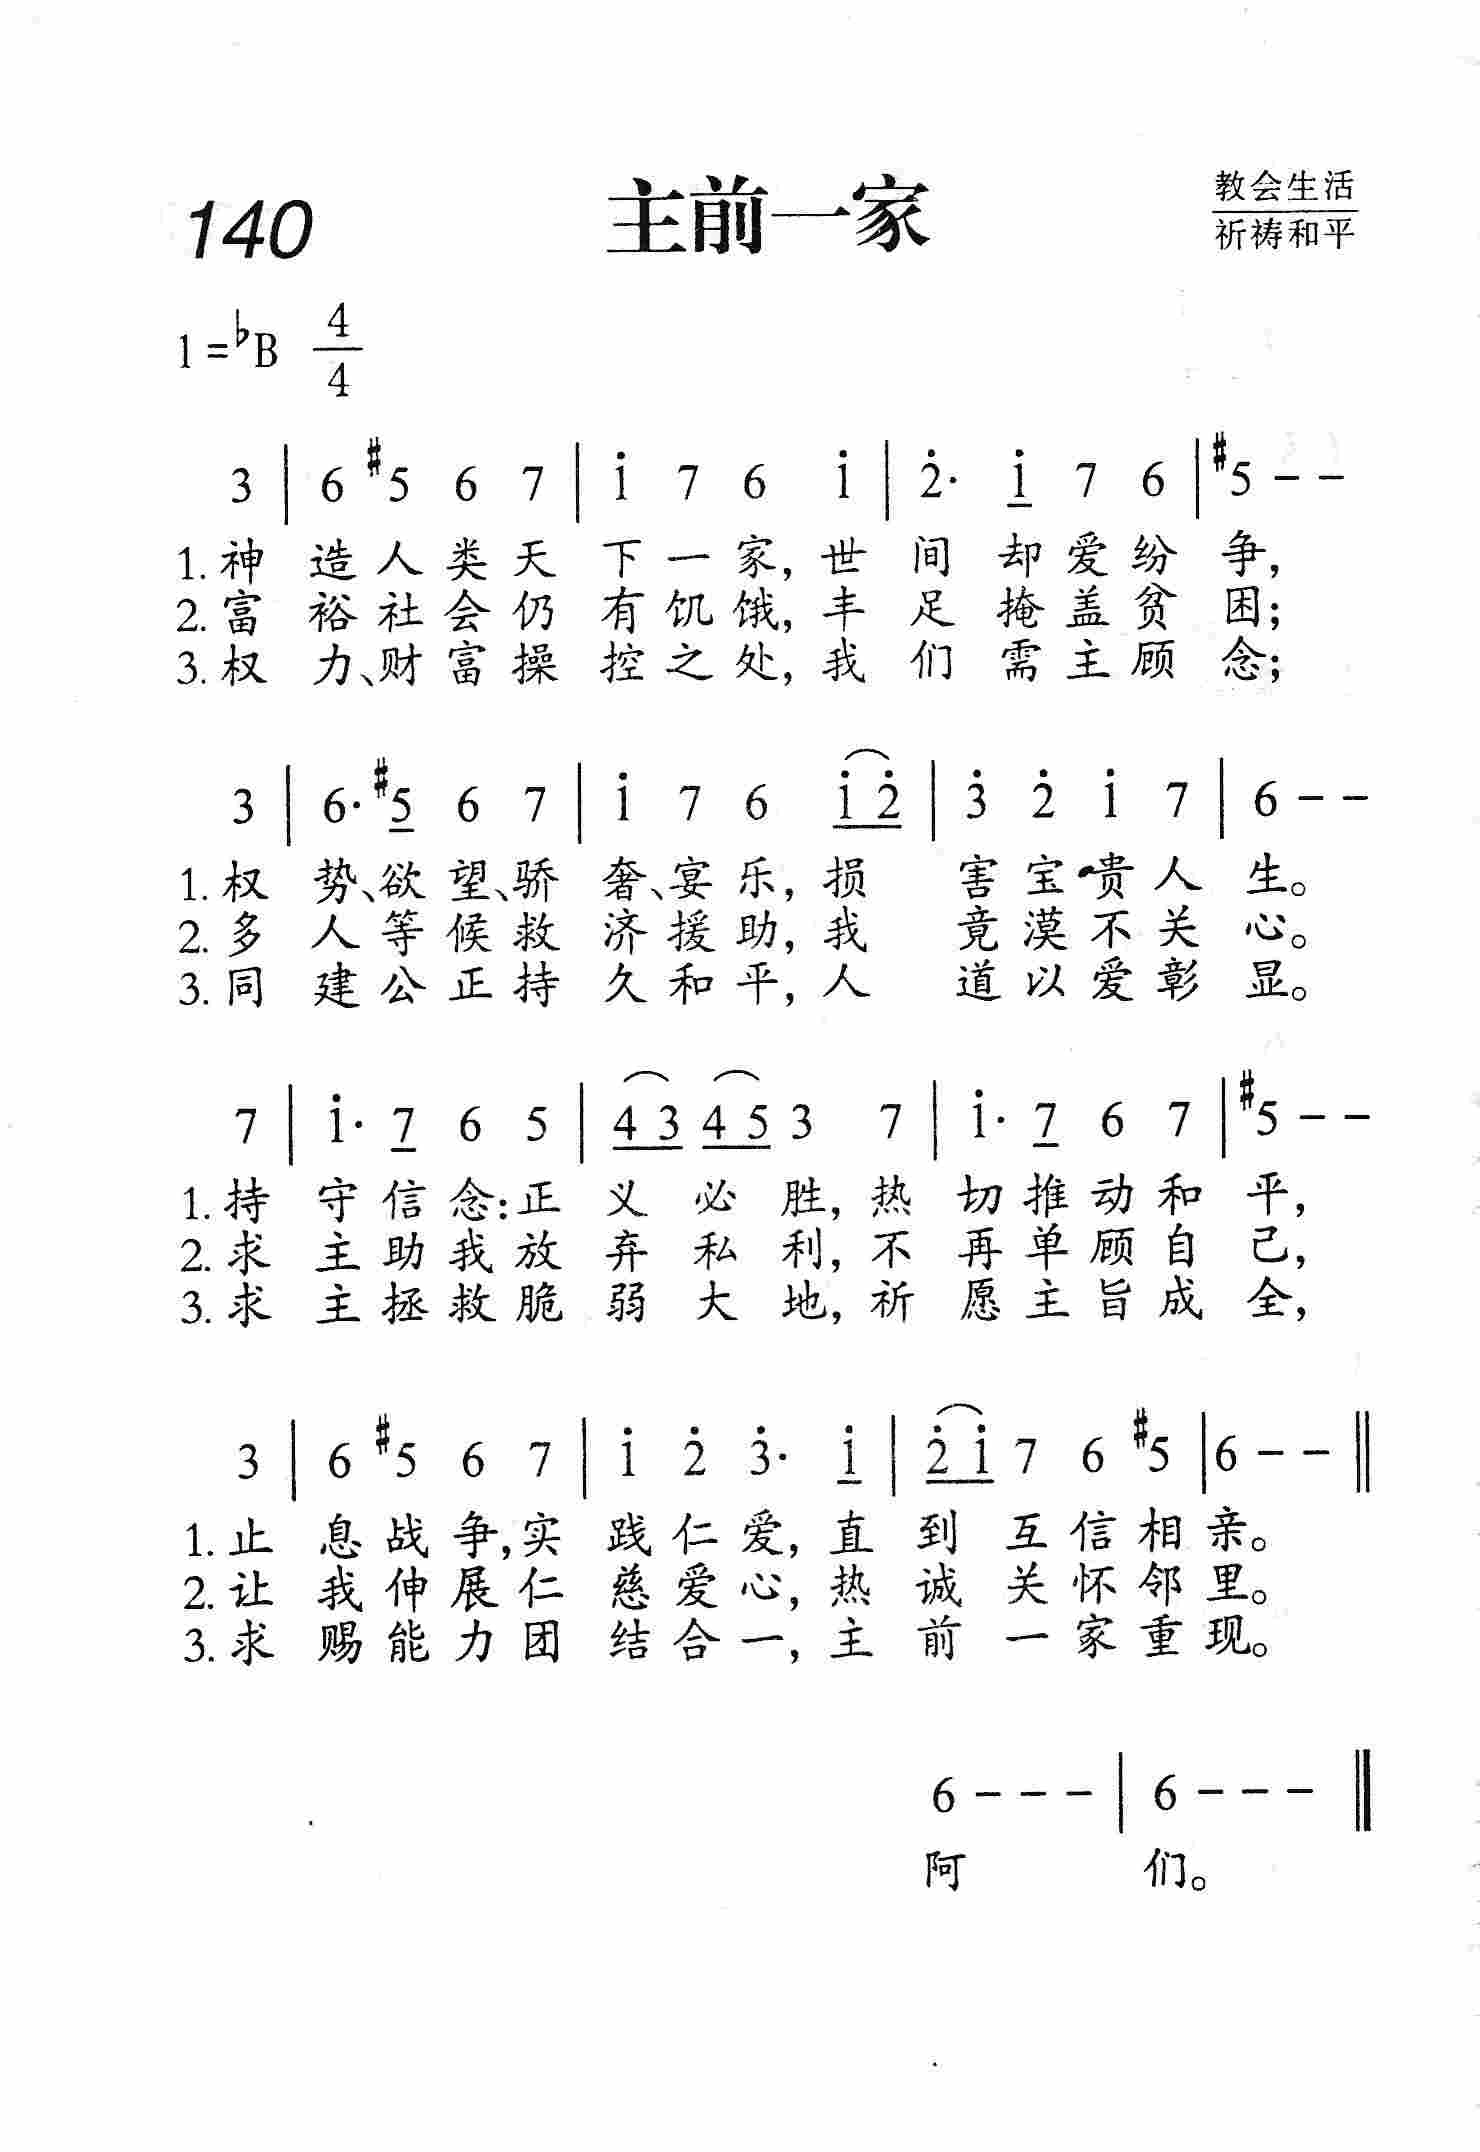 140 主前一家 教会生活
祈祷和平
1=♭B 4/4
3 | 6 #5 6 7 | i 7 6 i | 2̇· i 7 6 | #5 - -
1. 神造人类天下一家，世间却爱纷争，
2. 富裕社会仍有饥饿，丰足掩盖贫困；
3. 权力、财富操控之处，我们需主顾念；
3 | 6· #5 6 7 | i 7 6 i 2̇ | 3̇ 2̇ i 7 | 6 - -
1. 权势、欲望、骄奢、宴乐，损害宝贵人生。
2. 多人等候救济援助，我竟漠不关心。
3. 同建公正持久和平，人道以爱彰显。
7 | i· 7 6 5 | 4 3 4 5 3 7 | i· 7 6 7 | #5 - -
1. 持守信念：正义必胜，热切推动和平，
2. 求主助我放弃私利，不再单顾自己，
3. 求主拯救脆弱大地，祈愿主旨成全，
3 | 6 #5 6 7 | i 2̇ 3̇· i | 2̇ i 7 6 #5 | 6 - - ‖
1. 止息战争，实践仁爱，直到互信相亲。
2. 让我伸展仁慈爱心，热诚关怀邻里。
3. 求赐能力团结合一，主前一家重现。
6 - - - | 6 - - - ‖
阿们。